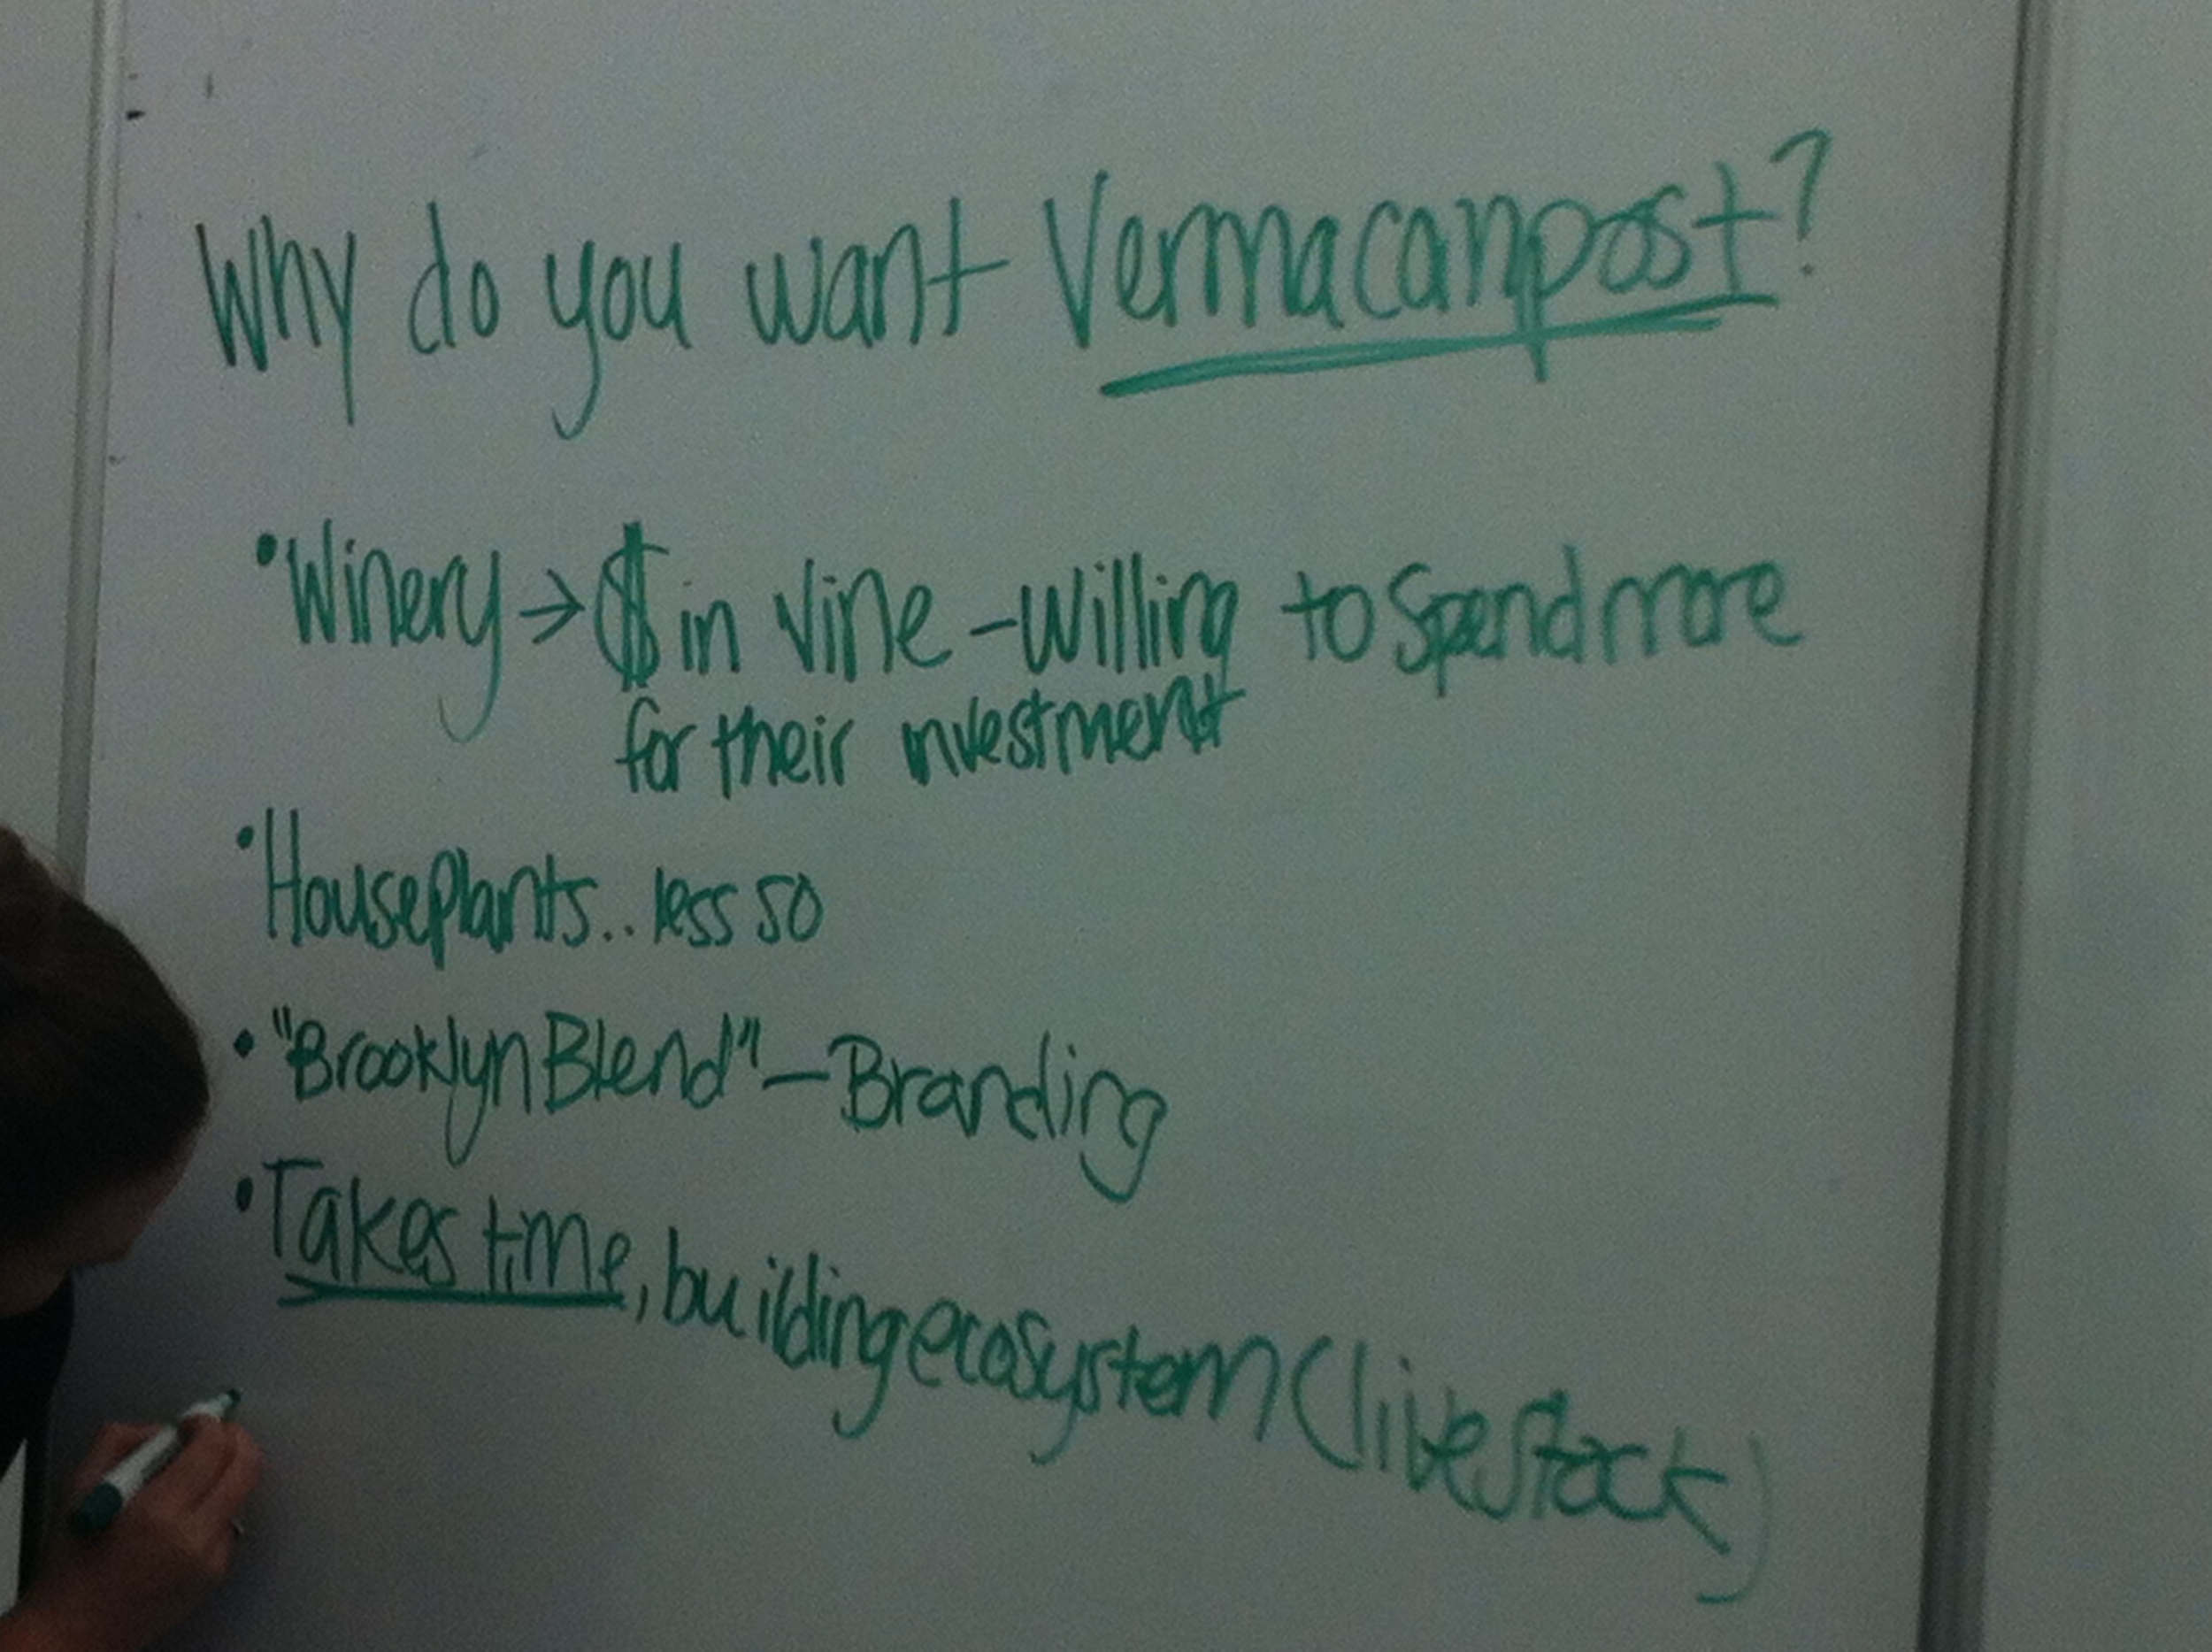 Why do you want Vermacompost?
• Winery → $ in vine - willing to spend more
for their investment
• House Plants.. less so
• "Brooklyn Blend" - Branding
• Takes time, building ecosystem (live stock)